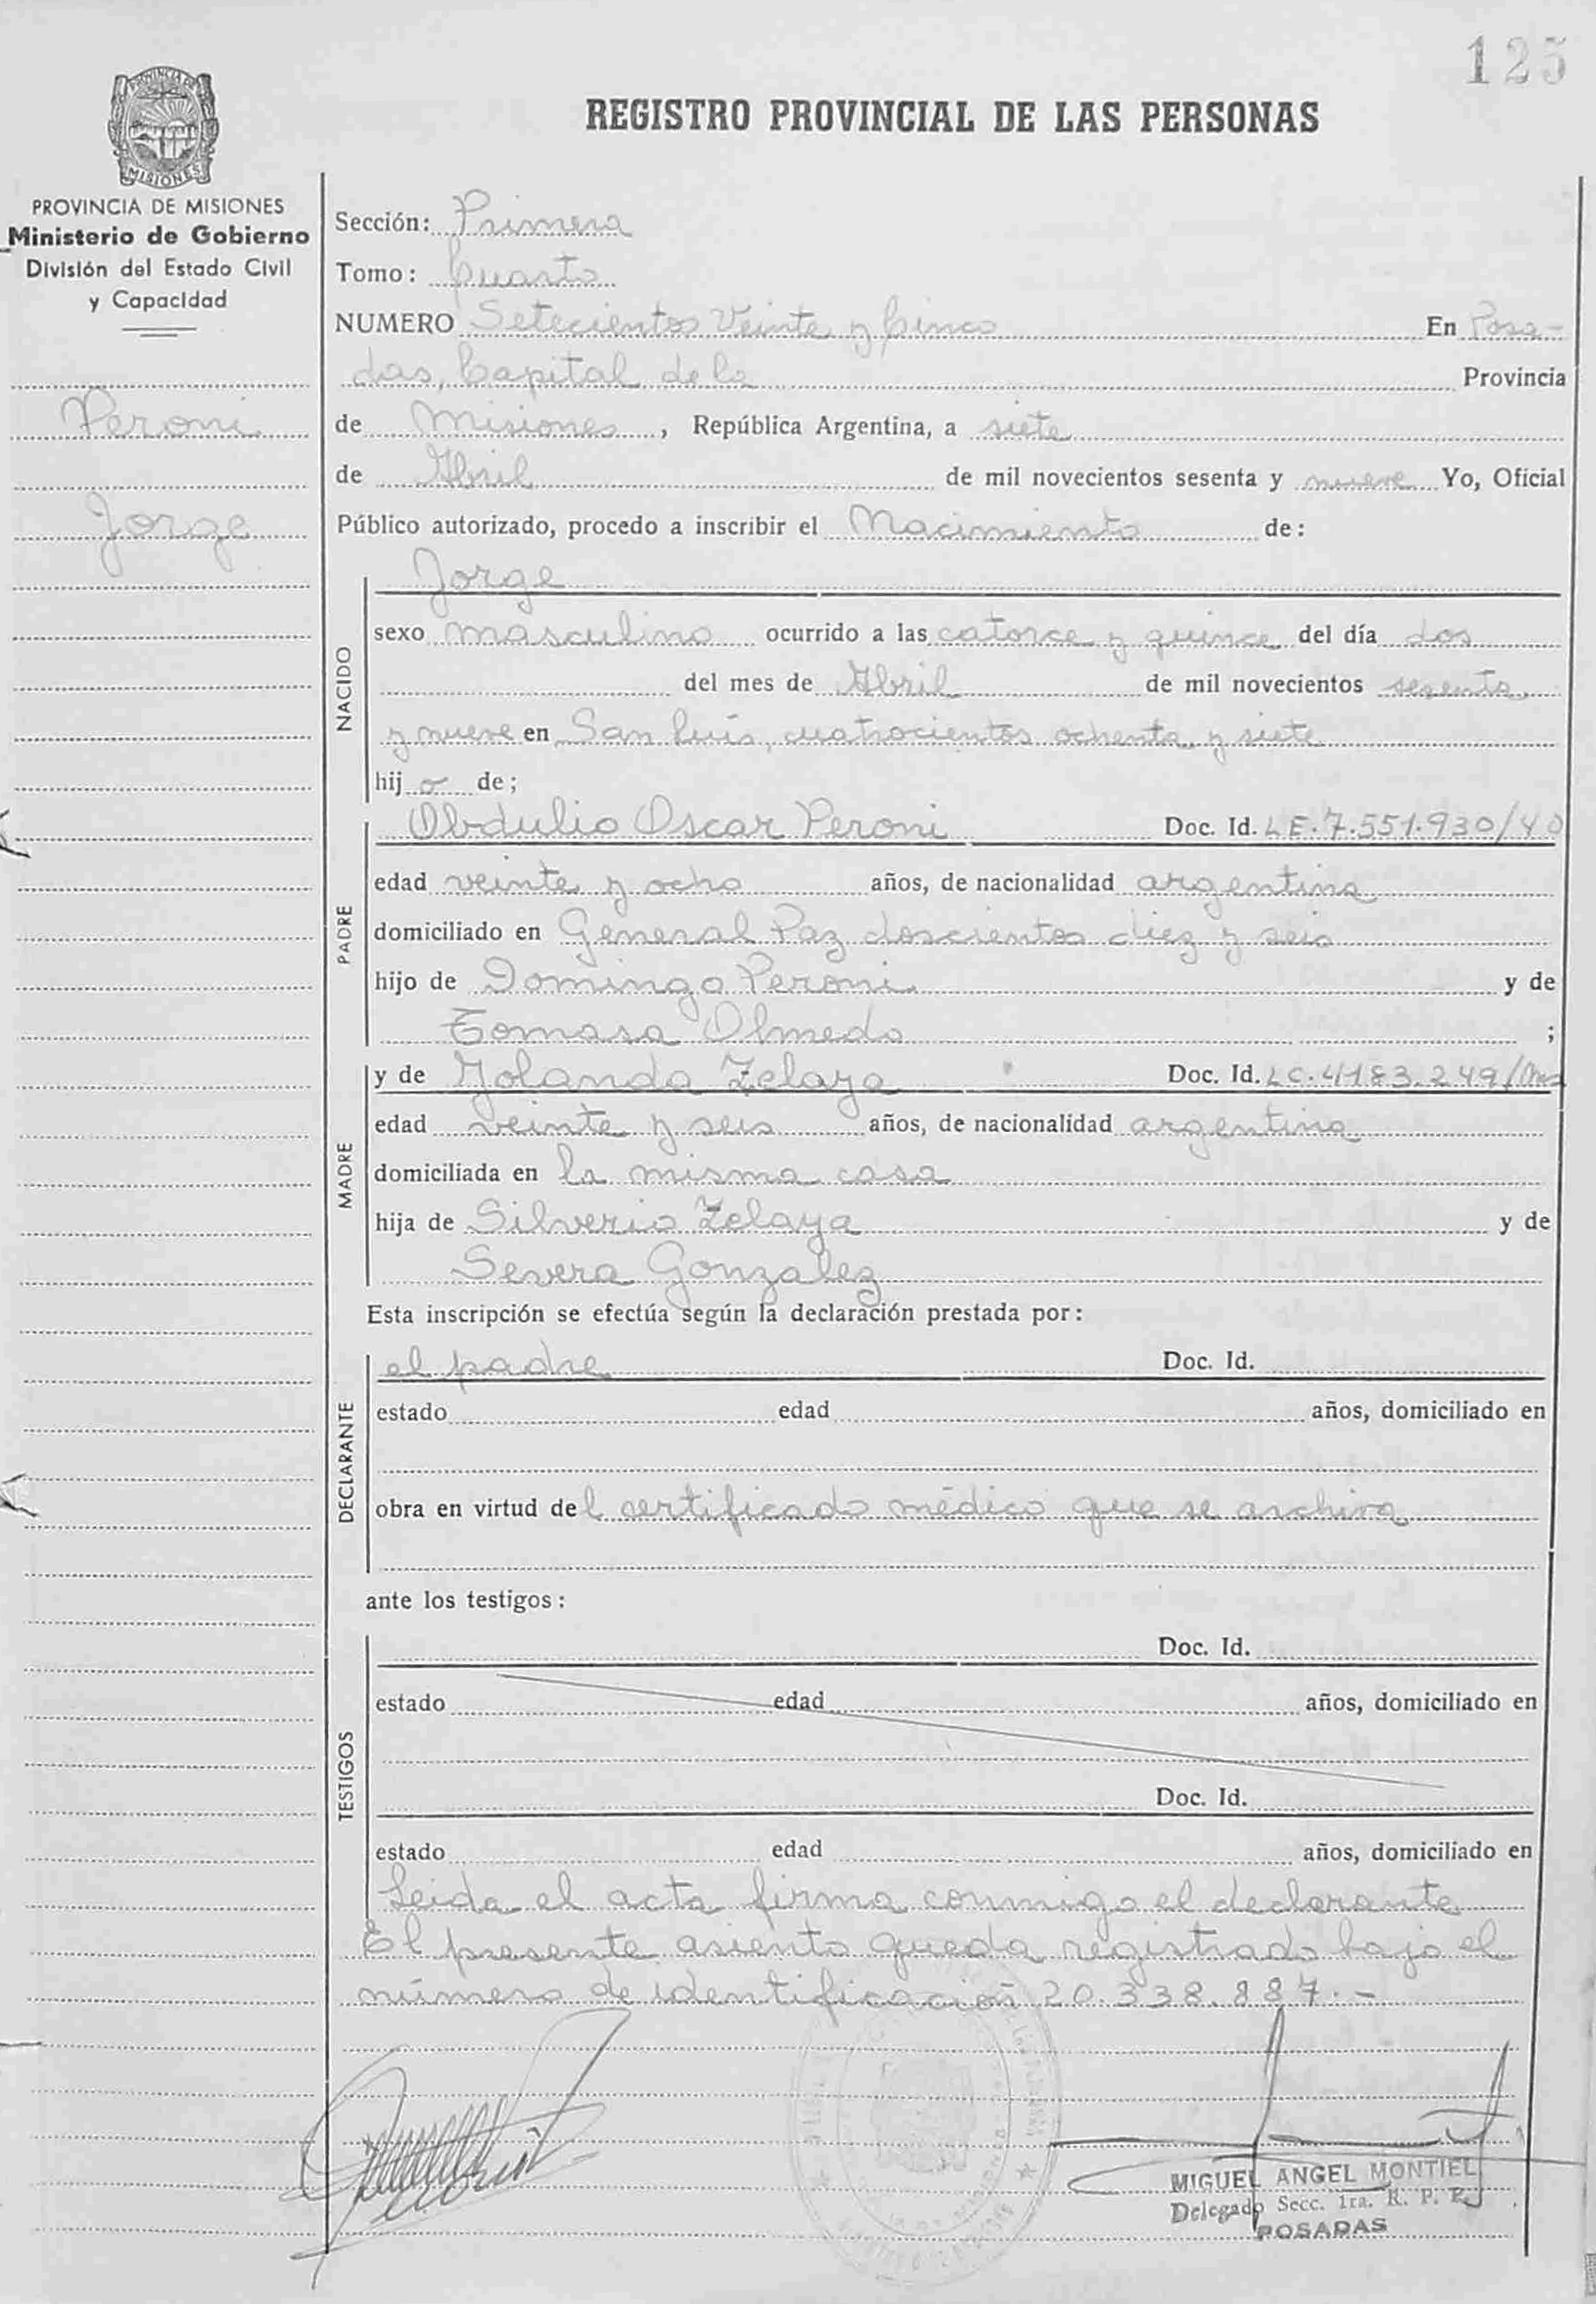 125
REGISTRO PROVINCIAL DE LAS PERSONAS
PROVINCIA DE
MISIONES
PROVINCIA DE MISIONES
Ministerio de Gobierno
División del Estado Civil
y Capacidad
Peroni
Jorge
Sección: Primera
Tomo: Cuarto
NUMERO Setecientos Veinte y Cinco En Posa-
das, Capital de la Provincia
de Misiones, República Argentina, a siete
de Abril de mil novecientos sesenta y nueve Yo, Oficial
Público autorizado, procedo a inscribir el Nacimiento de:
NACIDO
Jorge
sexo masculino ocurrido a las catorce y quince del día dos
del mes de Abril de mil novecientos sesenta
y nueve en San Luis, cuatrocientos ochenta y siete
hijo de;
PADRE
Obdulio Oscar Peroni Doc. Id. LE.7.551.930/40
edad veinte y ocho años, de nacionalidad argentina
domiciliado en General Paz doscientos diez y seis
hijo de Domingo Peroni y de
Tomasa Olmedo ;
MADRE
y de Yolanda Zelaya Doc. Id. LC.4183.249/
edad veinte y seis años, de nacionalidad argentina
domiciliada en la misma casa
hija de Silverio Zelaya y de
Severa Gonzalez
Esta inscripción se efectúa según la declaración prestada por:
DECLARANTE
el padre Doc. Id.
estado edad años, domiciliado en
obra en virtud del certificado médico que se archiva
ante los testigos:
TESTIGOS
Doc. Id.
estado edad años, domiciliado en
Doc. Id.
estado edad años, domiciliado en
Leida el acta firma conmigo el declarante
El presente asiento queda registrado bajo el
número de identificación 20.338.887.-
MIGUEL ANGEL MONTIEL
Delegado Secc. 1ra. R. P. P.
POSADAS